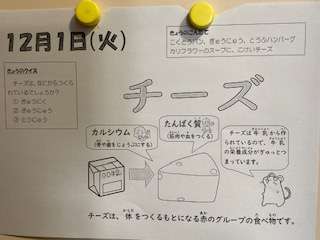 12月1日(火)
きょうのこんだて
こくとうパン、ぎゅうにゅう、とうふハンバーグ
カリフラワーのスープに、こけいチーズ
きょうのクイズ
チーズは、なにからつくら
れているでしょうか？
① ぎゅうにく
② ぎゅうにゅう
③ とうにゅう
チーズ
カルシウム
(骨や歯をじょうぶにする)
たんぱく質
(筋肉や血をつくる)
チーズは牛乳から作
られているので、牛乳
の栄養成分がぎゅっとつ
まっています。
チーズは、体をつくるもとになる赤のグループの食べ物です。